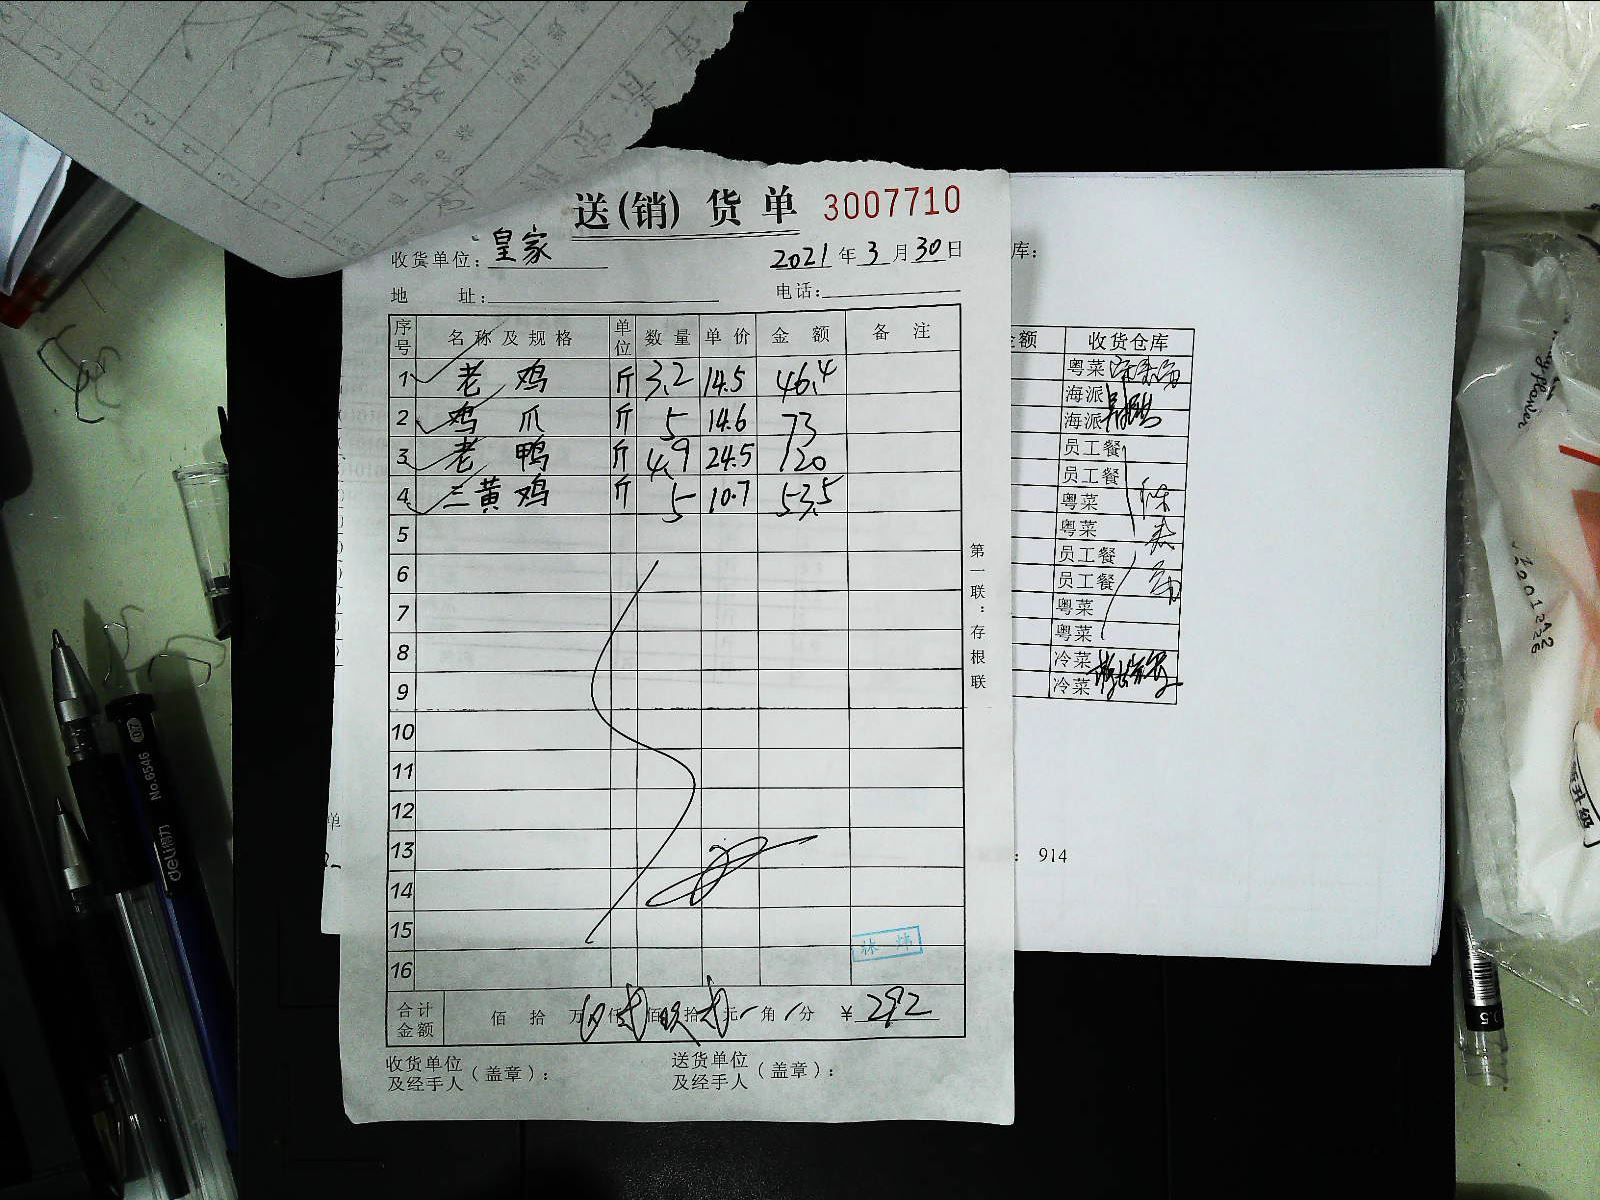 送(销)货单 3007710
收货单位: 皇家 2021年3月30日
地 址: 电话:
序号 名称及规格 单位 数量 单价 金额 备注
1 老鸡 斤 3.2 14.5 46.4
2 鸡爪 斤 5 14.6 73
3 老鸭 斤 4.9 24.5 120
4 三黄鸡 斤 5 10.7 53.5
5
6
7
8
9
10
11
12
13
14
15
16
合计金额 佰 拾 万 仟 佰 拾 元 角 分 ¥ 292
收货单位及经手人(盖章): 送货单位及经手人(盖章):
第一联:存根联
库:
金额 收货仓库
粤菜
海派
海派
员工餐
员工餐
粤菜
粤菜
员工餐
员工餐
粤菜
粤菜
冷菜
冷菜
: 914
单
No.6546
deli得力
0.5
20201226
新升级